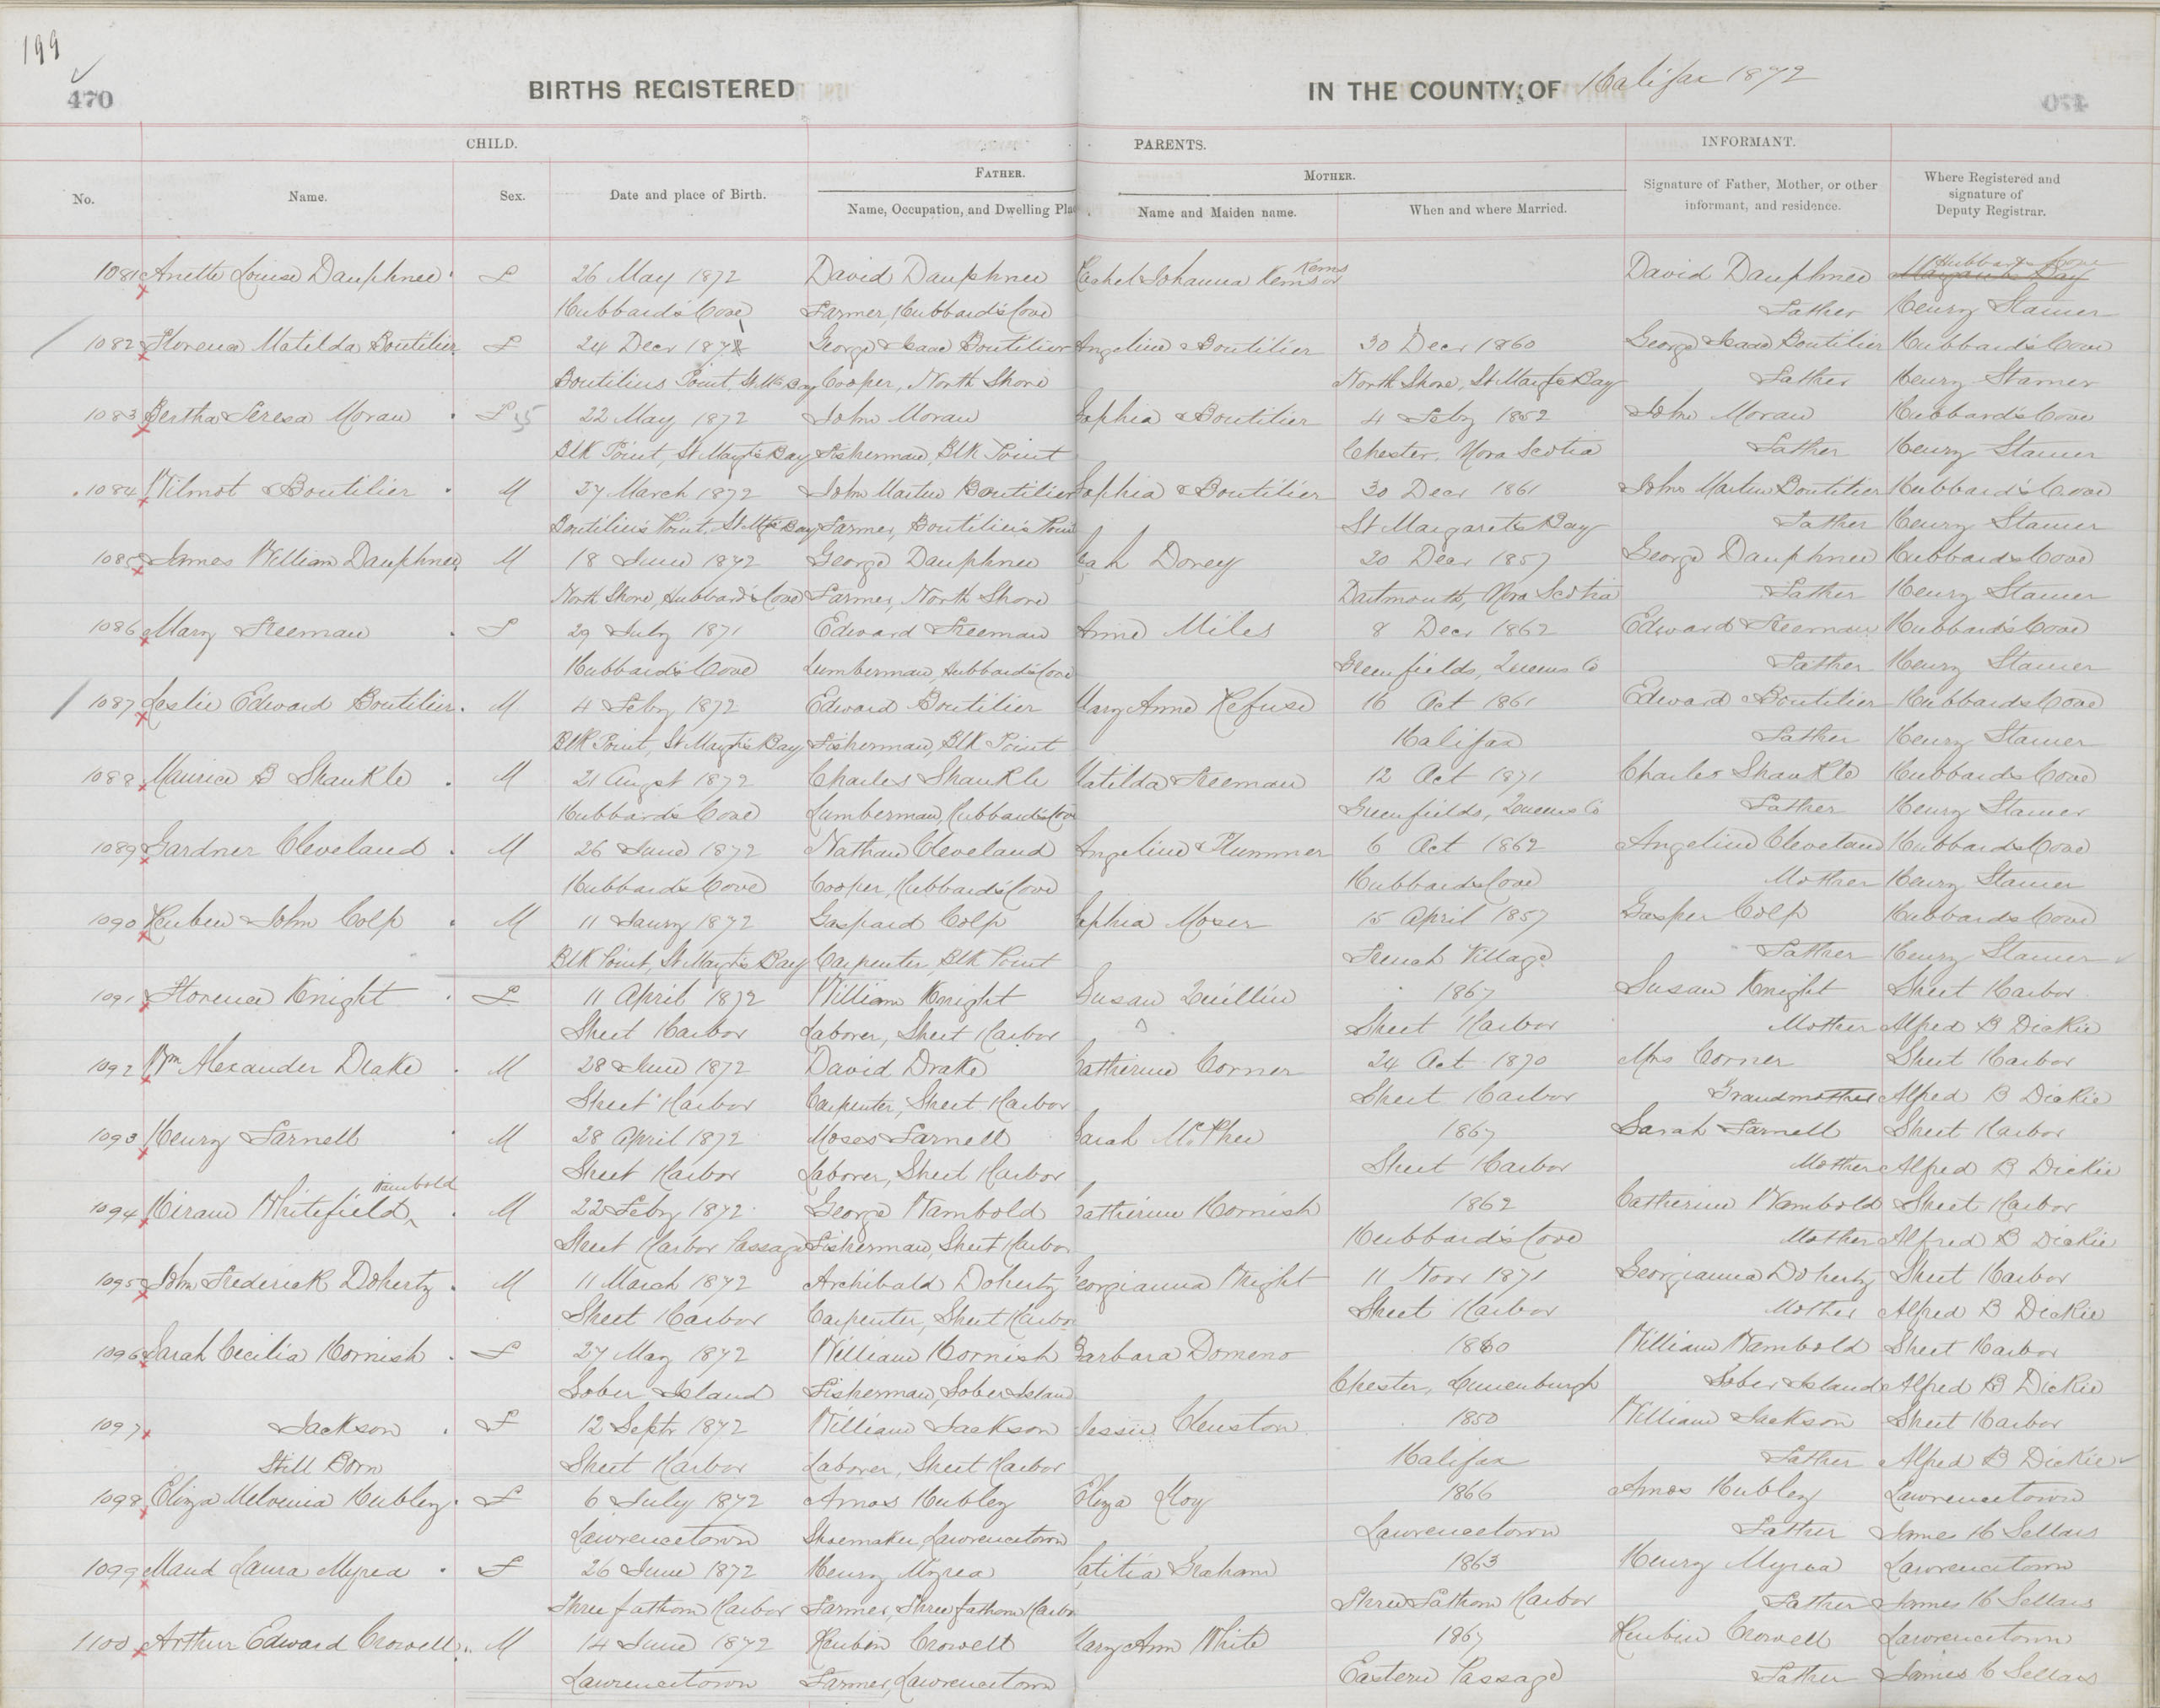 199
470
BIRTHS REGISTERED IN THE COUNTY OF Halifax 1872
CHILD. PARENTS. INFORMANT.
FATHER. MOTHER.
No. Name. Sex. Date and place of Birth. Name, Occupation, and Dwelling Pla Name and Maiden name. When and where Married. Signature of Father, Mother, or other informant, and residence. Where Registered and signature of Deputy Registrar.
1081 Anette Louisa Dauphnee F 26 May 1872 David Dauphnee Johanna David Dauphnee Hubbards Cove
Hubbards Cove Farmer, Hubbards Cove Father Henry Stamer
1082 Florence Matilda Boutilier F 24 Decr George Isaac Boutilier Angeline Boutilier 30 Decr 1860 George Isaac Boutilier Hubbards Cove
Boutiliers Point, St Mts Bay Cooper, North Shore North Shore, St Margts Bay Father Henry Stamer
1083 Bertha Teresa Moran F 22 May 1872 John Moran Sophia Boutilier 4 Feby 1852 John Moran Hubbards Cove
Blk Point, St Margts Bay Fisherman, Blk Point Chester, Nova Scotia Father Henry Stamer
1084 Wilmot Boutilier M 27 March 1872 John Martin Boutilier Sophia Boutilier 30 Decr 1861 John Martin Boutilier Hubbards Cove
Boutiliers Point, St Mgts Bay Farmer, Boutiliers Point St Margarets Bay Father Henry Stamer
1085 James William Dauphnee M 18 June 1872 George Dauphnee Leah Dorey 20 Decr 1857 George Dauphnee Hubbards Cove
North Shore, Hubbards Cove Farmer, North Shore Dartmouth, Nova Scotia Father Henry Stamer
1086 Mary Freeman F 29 July 1871 Edward Freeman Anne Miles 8 Decr 1862 Edward Freeman Hubbards Cove
Hubbards Cove Lumberman, Hubbards Cove Greenfields, Queens Co Father Henry Stamer
1087 Leslie Edward Boutilier M 4 Feby 1872 Edward Boutilier Mary Anne Refuse 16 Oct 1861 Edward Boutilier Hubbards Cove
Blk Point, St Margts Bay Fisherman, Blk Point Halifax Father Henry Stamer
1088 Maurice B Shankle M 21 Augst 1872 Charles Shankle Matilda Freeman 12 Oct 1871 Charles Shankle Hubbards Cove
Hubbards Cove Lumberman, Hubbards Cove Greenfields, Queens Co Father Henry Stamer
1089 Gardner Cleveland M 26 June 1872 Nathan Cleveland Angeline Plummer 6 Oct 1862 Angeline Cleveland Hubbards Cove
Hubbards Cove Cooper, Hubbards Cove Hubbards Cove Mother Henry Stamer
1090 Reuben John Colp M 11 Jany 1872 Gaspard Colp Sophia Moser 15 April 1857 Gasper Colp Hubbards Cove
Blk Point, St Margts Bay Carpenter, Blk Point French Village Father Henry Stamer
1091 Florence Knight F 11 April 1872 William Knight Susan Quillin 1867 Susan Knight Sheet Harbor
Sheet Harbor Laborer, Sheet Harbor Sheet Harbor Mother Alfred B Dickie
1092 Wm Alexander Drake M 28 June 1872 David Drake Catherine Corner 24 Oct 1870 Mrs Corner Sheet Harbor
Sheet Harbor Carpenter, Sheet Harbor Sheet Harbor Grandmother Alfred B Dickie
1093 Henry Farnell M 28 April 1872 Moses Farnell Sarah McPhee 1867 Sarah Farnell Sheet Harbor
Sheet Harbor Laborer, Sheet Harbor Sheet Harbor Mother Alfred B Dickie
Wambold
1094 Hiram Whitefield M 22 Feby 1872 George Wambold Catherine Hornish 1862 Catherine Wambold Sheet Harbor
Sheet Harbor Passage Fisherman, Sheet Harbor Hubbards Cove Mother Alfred B Dickie
1095 John Frederick Doherty M 11 March 1872 Archibald Doherty Georgianna Wright 11 Novr 1871 Georgianna Doherty Sheet Harbor
Sheet Harbor Carpenter, Sheet Harbor Sheet Harbor Mother Alfred B Dickie
1096 Sarah Cecilia Hornish F 27 May 1872 William Hornish Barbara Domeno 1860 William Wambold Sheet Harbor
Sober Island Fisherman, Sober Island Chester, Lunenburgh Sober Island Alfred B Dickie
1097 Jackson F 12 Septr 1872 William Jackson Jessie Cleuston 1850 William Jackson Sheet Harbor
Still Born Sheet Harbor Laborer, Sheet Harbor Halifax Father Alfred B Dickie
1098 Eliza Melvenia Hubley F 6 July 1872 Amos Hubley Eliza Loy 1866 Amos Hubley Lawrencetown
Lawrencetown Shoemaker, Lawrencetown Lawrencetown Father James H Sellars
1099 Maud Laura Myrea F 26 June 1872 Henry Myrea Latitia Graham 1863 Henry Myrea Lawrencetown
Three fathom Harbor Farmer, Three fathom Harbor Three Fathom Harbor Father James H Sellars
1100 Arthur Edward Crowell M 14 June 1872 Reubin Crowell Mary Ann White 1867 Reubin Crowell Lawrencetown
Lawrencetown Farmer, Lawrencetown Eastern Passage Father James H Sellars